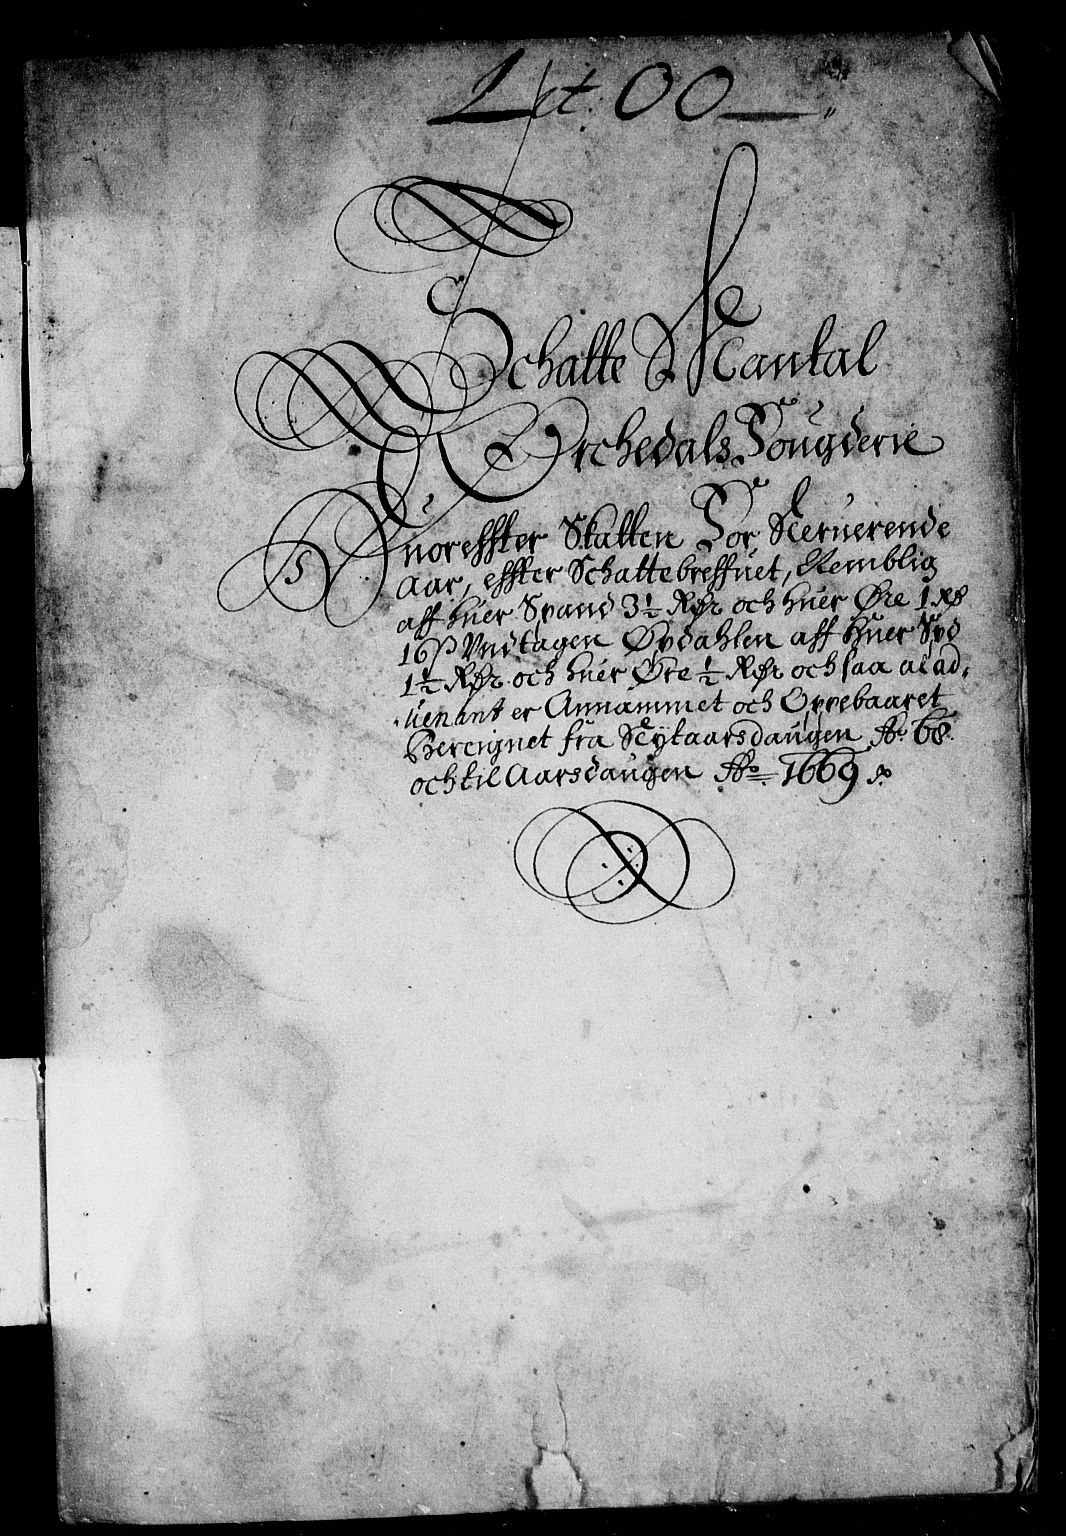 Lit. OO
Schatte Mantal
Orchedals Fougderie
Huoreffter Skatten For Neruerende
Aar, effter Schattebreffuet, Nemblig
aff huer Spand 3½ Rdr och huer Øre 1 Rd
16 ß Vndtagen Opdahlen aff huer Spd
1½ Rdr och huer Øre ½ Rdr och saa ai ad-
uenant er Annammet och Oppebaaret
Beregnet fra Nytaarsdaugen Ao 68.
och til Aarsdaugen Ao 1669